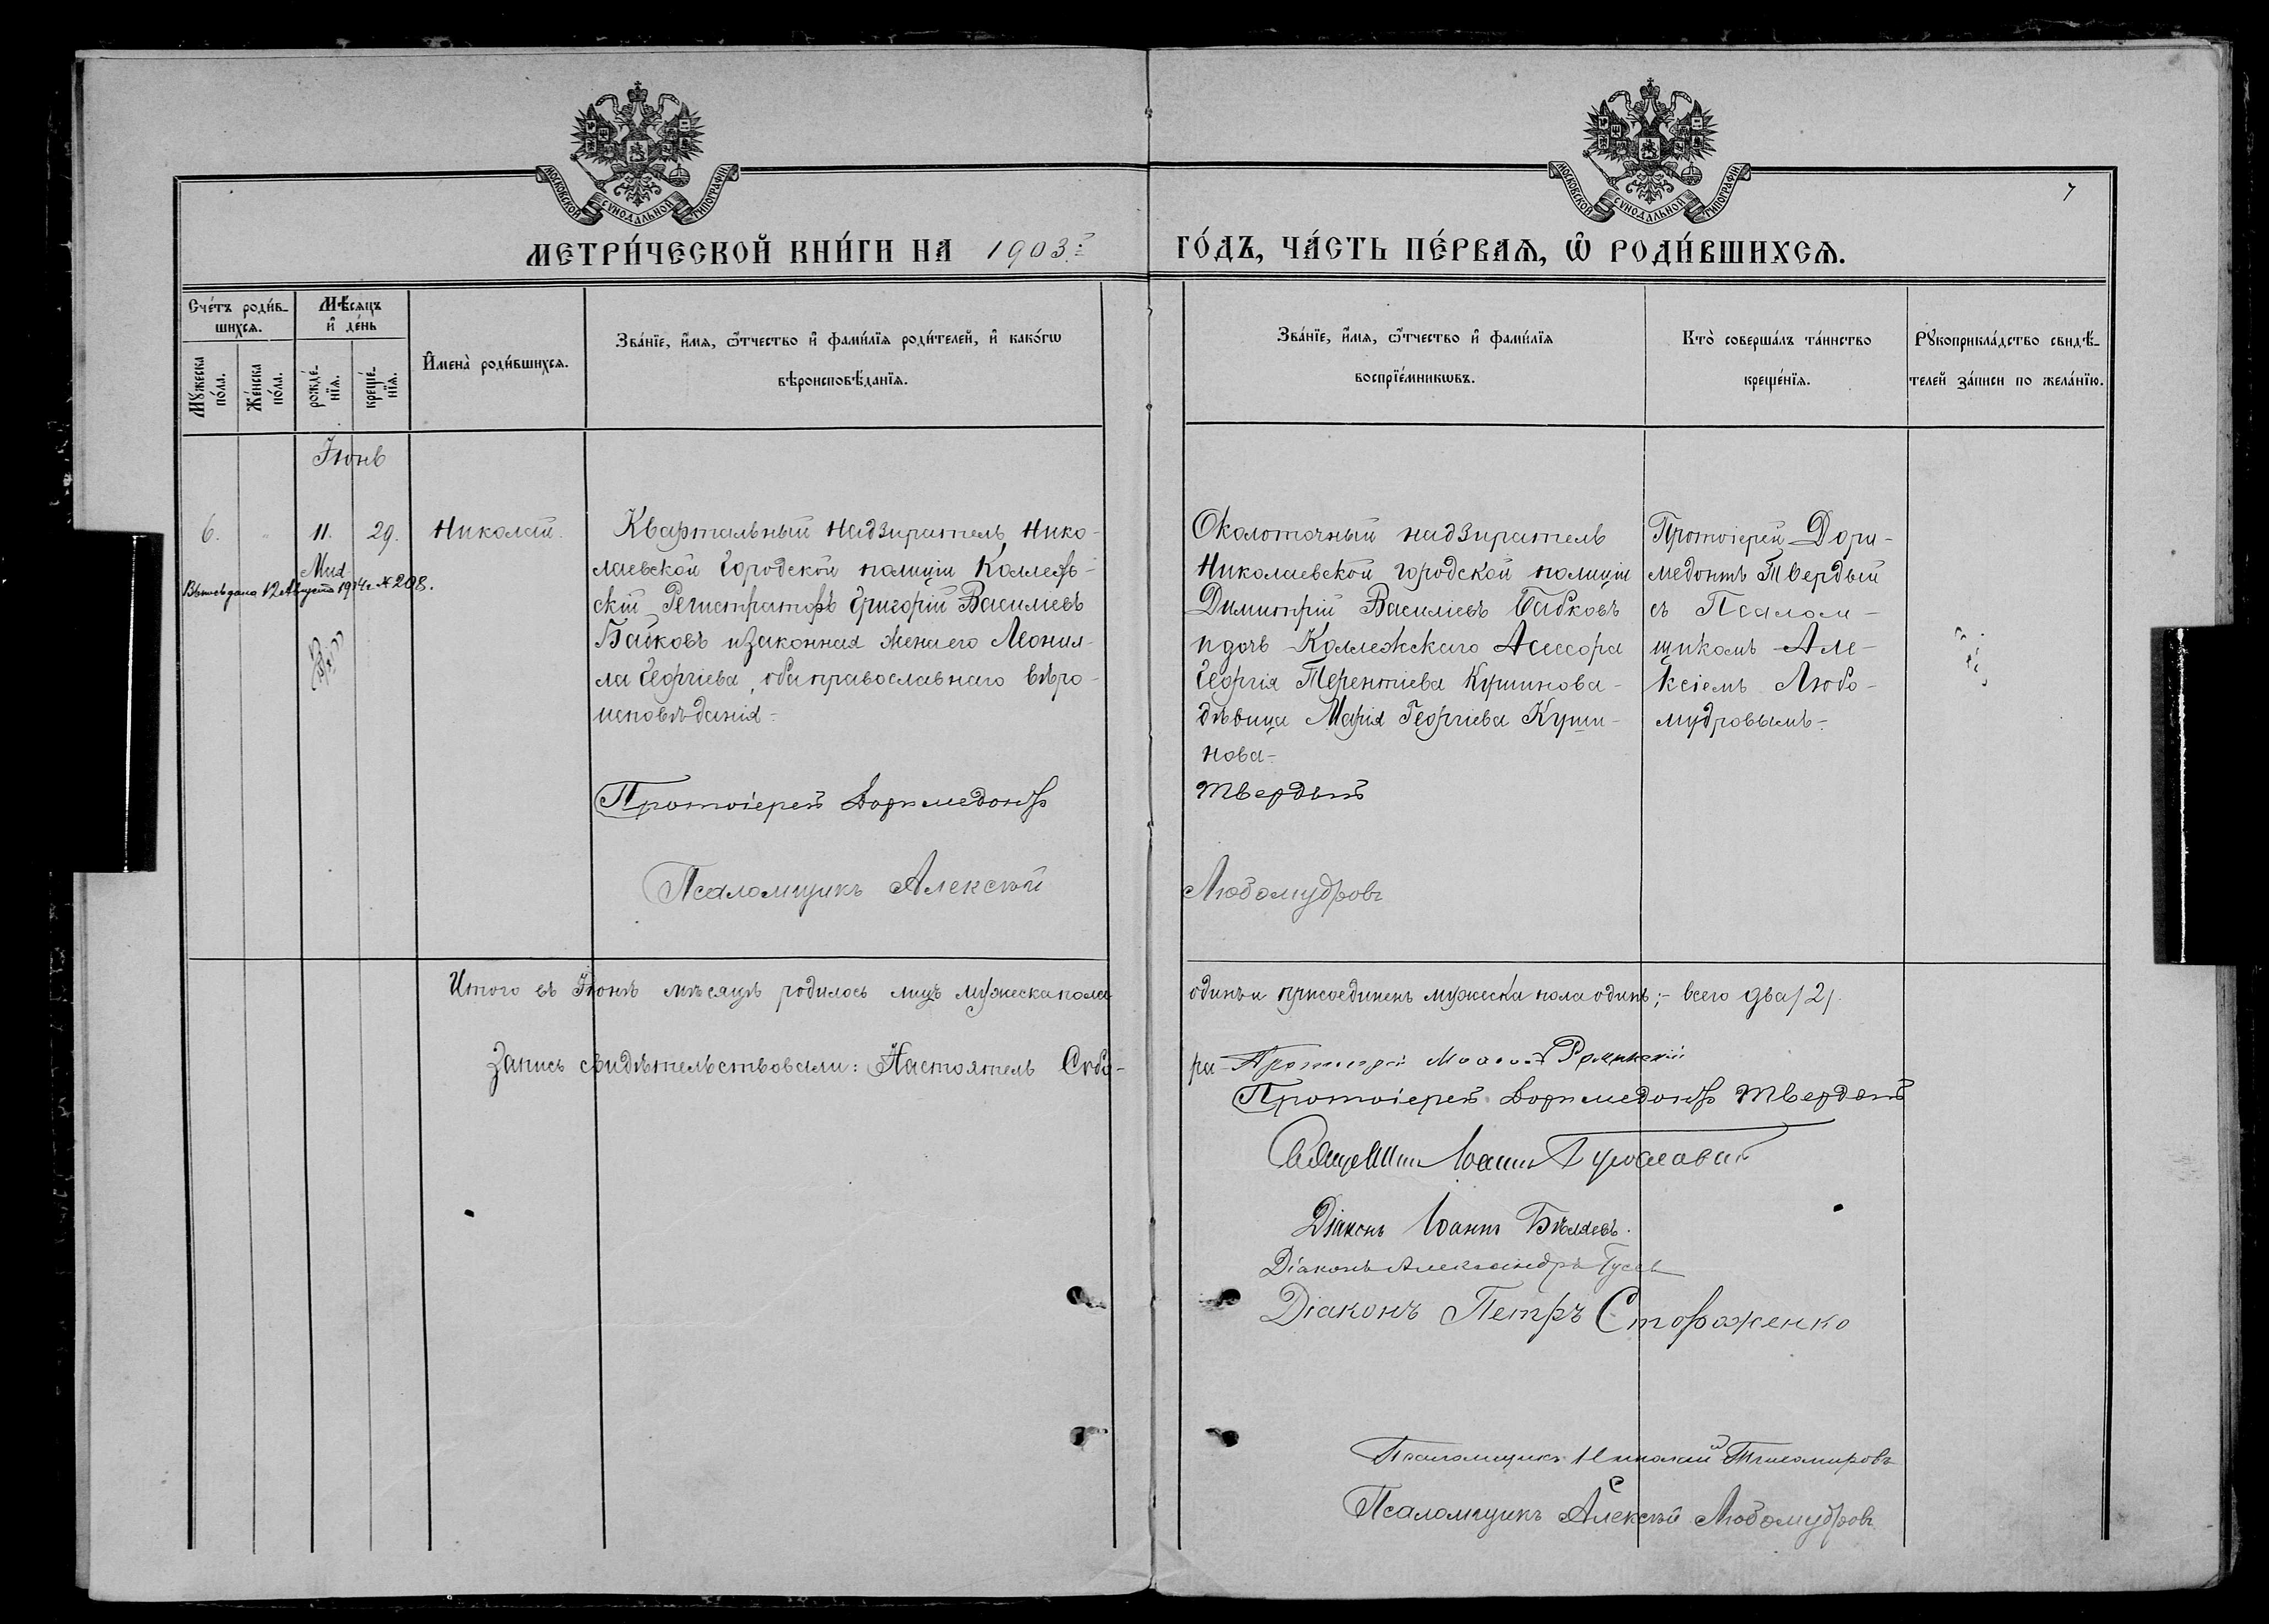 МОСКОВСКОЙ СУНОДАЛЬНОЙ ТИПОГРАФІИ
МОСКОВСКОЙ СУНОДАЛЬНОЙ ТИПОГРАФІИ
7
МЕТРИ́ЧЕСКОЙ КНИ́ГИ НА 1903й
ГО́ДЪ, ЧА́СТЬ ПЕ́РВАѦ, Ѿ РОДИ́ВШИХСѦ.
Сче́тъ роди́в-
шихсѧ.
Мѣ́сѧцъ
и҆ де́нь
Мꙋ́жеска
по́ла.
Же́нска
по́ла.
рожде́-
нїѧ.
креще́-
нїѧ.
И҆мена̀ роди́вшихсѧ.
Зва́нїе, и҆́мѧ, ѻ҆́тчество и҆ фами́лїѧ роди́телей, и҆ како́гѡ
вѣроисповѣ́данїѧ.
Зва́нїе, и҆́мѧ, ѻ҆́тчество и҆ фами́лїѧ
воспрїе́мникѡвъ.
Кто̀ соверша́лъ та́инство
креще́нїѧ.
Рꙋкоприкла́дство свидѣ́-
телей за́писи по жела́нїю.
Іюнь
6.
11.
29.
Николай.
Выпись дана 12 Августа 1914 г. № 208.
Квартальный надзиратель Нико-
лаевской городской полиціи Коллеж-
скій Регистраторъ Григорій Василіевъ
Байковъ и законная жена его Леонил-
ла Георгіева, оба православнаго вѣро-
исповѣданія-
Околоточный надзиратель
Николаевской городской полиціи
Димитрій Василіевъ Бабковъ
и дочь Коллежскаго Ассесора
Георгія Терентіева Кушинова-
дѣвица Марія Георгіева Куши-
нова-
Протоіерей Дори-
медонтъ Твердый
съ Псалом-
щикомъ Але-
ксіемъ Любо-
мудровымъ-
Протоіерей Доримедонтъ
Твердый
Псаломщикъ Алексѣй
Любомудровъ
Итого въ Іюнѣ мѣсяцѣ родилось лицъ мужеска пола
одинъ и присоединенъ мужеска пола одинъ;- всего два/2/.
Запись свидѣтельствовали: Настоятель Собо-
ра- Протоіерей
Протоіерей Доримедонтъ Твердый
Священникъ Іоаннъ
Діаконъ Іоаннъ Бѣляевъ.
Діаконъ Александръ Гусевъ
Діаконъ Петръ Стороженко
Псаломщикъ Николай Тихомировъ
Псаломщикъ Алексѣй Любомудровъ